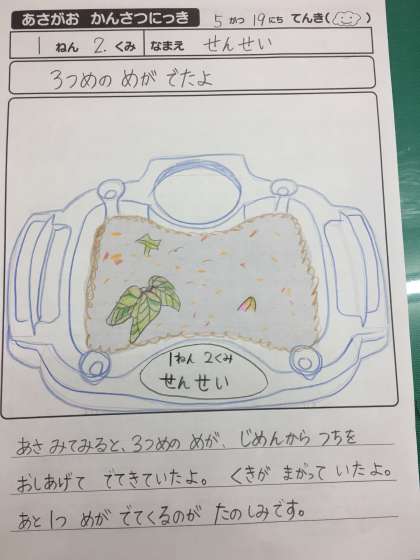 あさがお かんさつにっき 5 がつ 19 にち てんき( )
1 ねん 2. くみ なまえ せんせい
3つめの めが でたよ
1ねん 2くみ
せんせい
あさ みてみると、3つめの めが、じめんから つちを
おしあげて でてきていたよ。 くきが まがって いたよ。
あと1つ めが でてくるのが たのしみです。